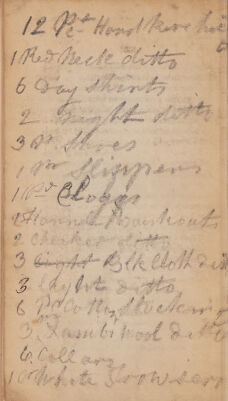 12 Pt Handkerchie
1 Red Neck ditto
6 Day Shirts
2 Night ditto
3 Pr Shoes
1 Pr Slippers
1 Pr Cloggs
2 Flannel
2 Checker ditto
3 Blk Cloth dit
3 Light ditto
6 Pr Cotton Stocking
3 Lambswool ditto
6 Collars
10 White Trowsers